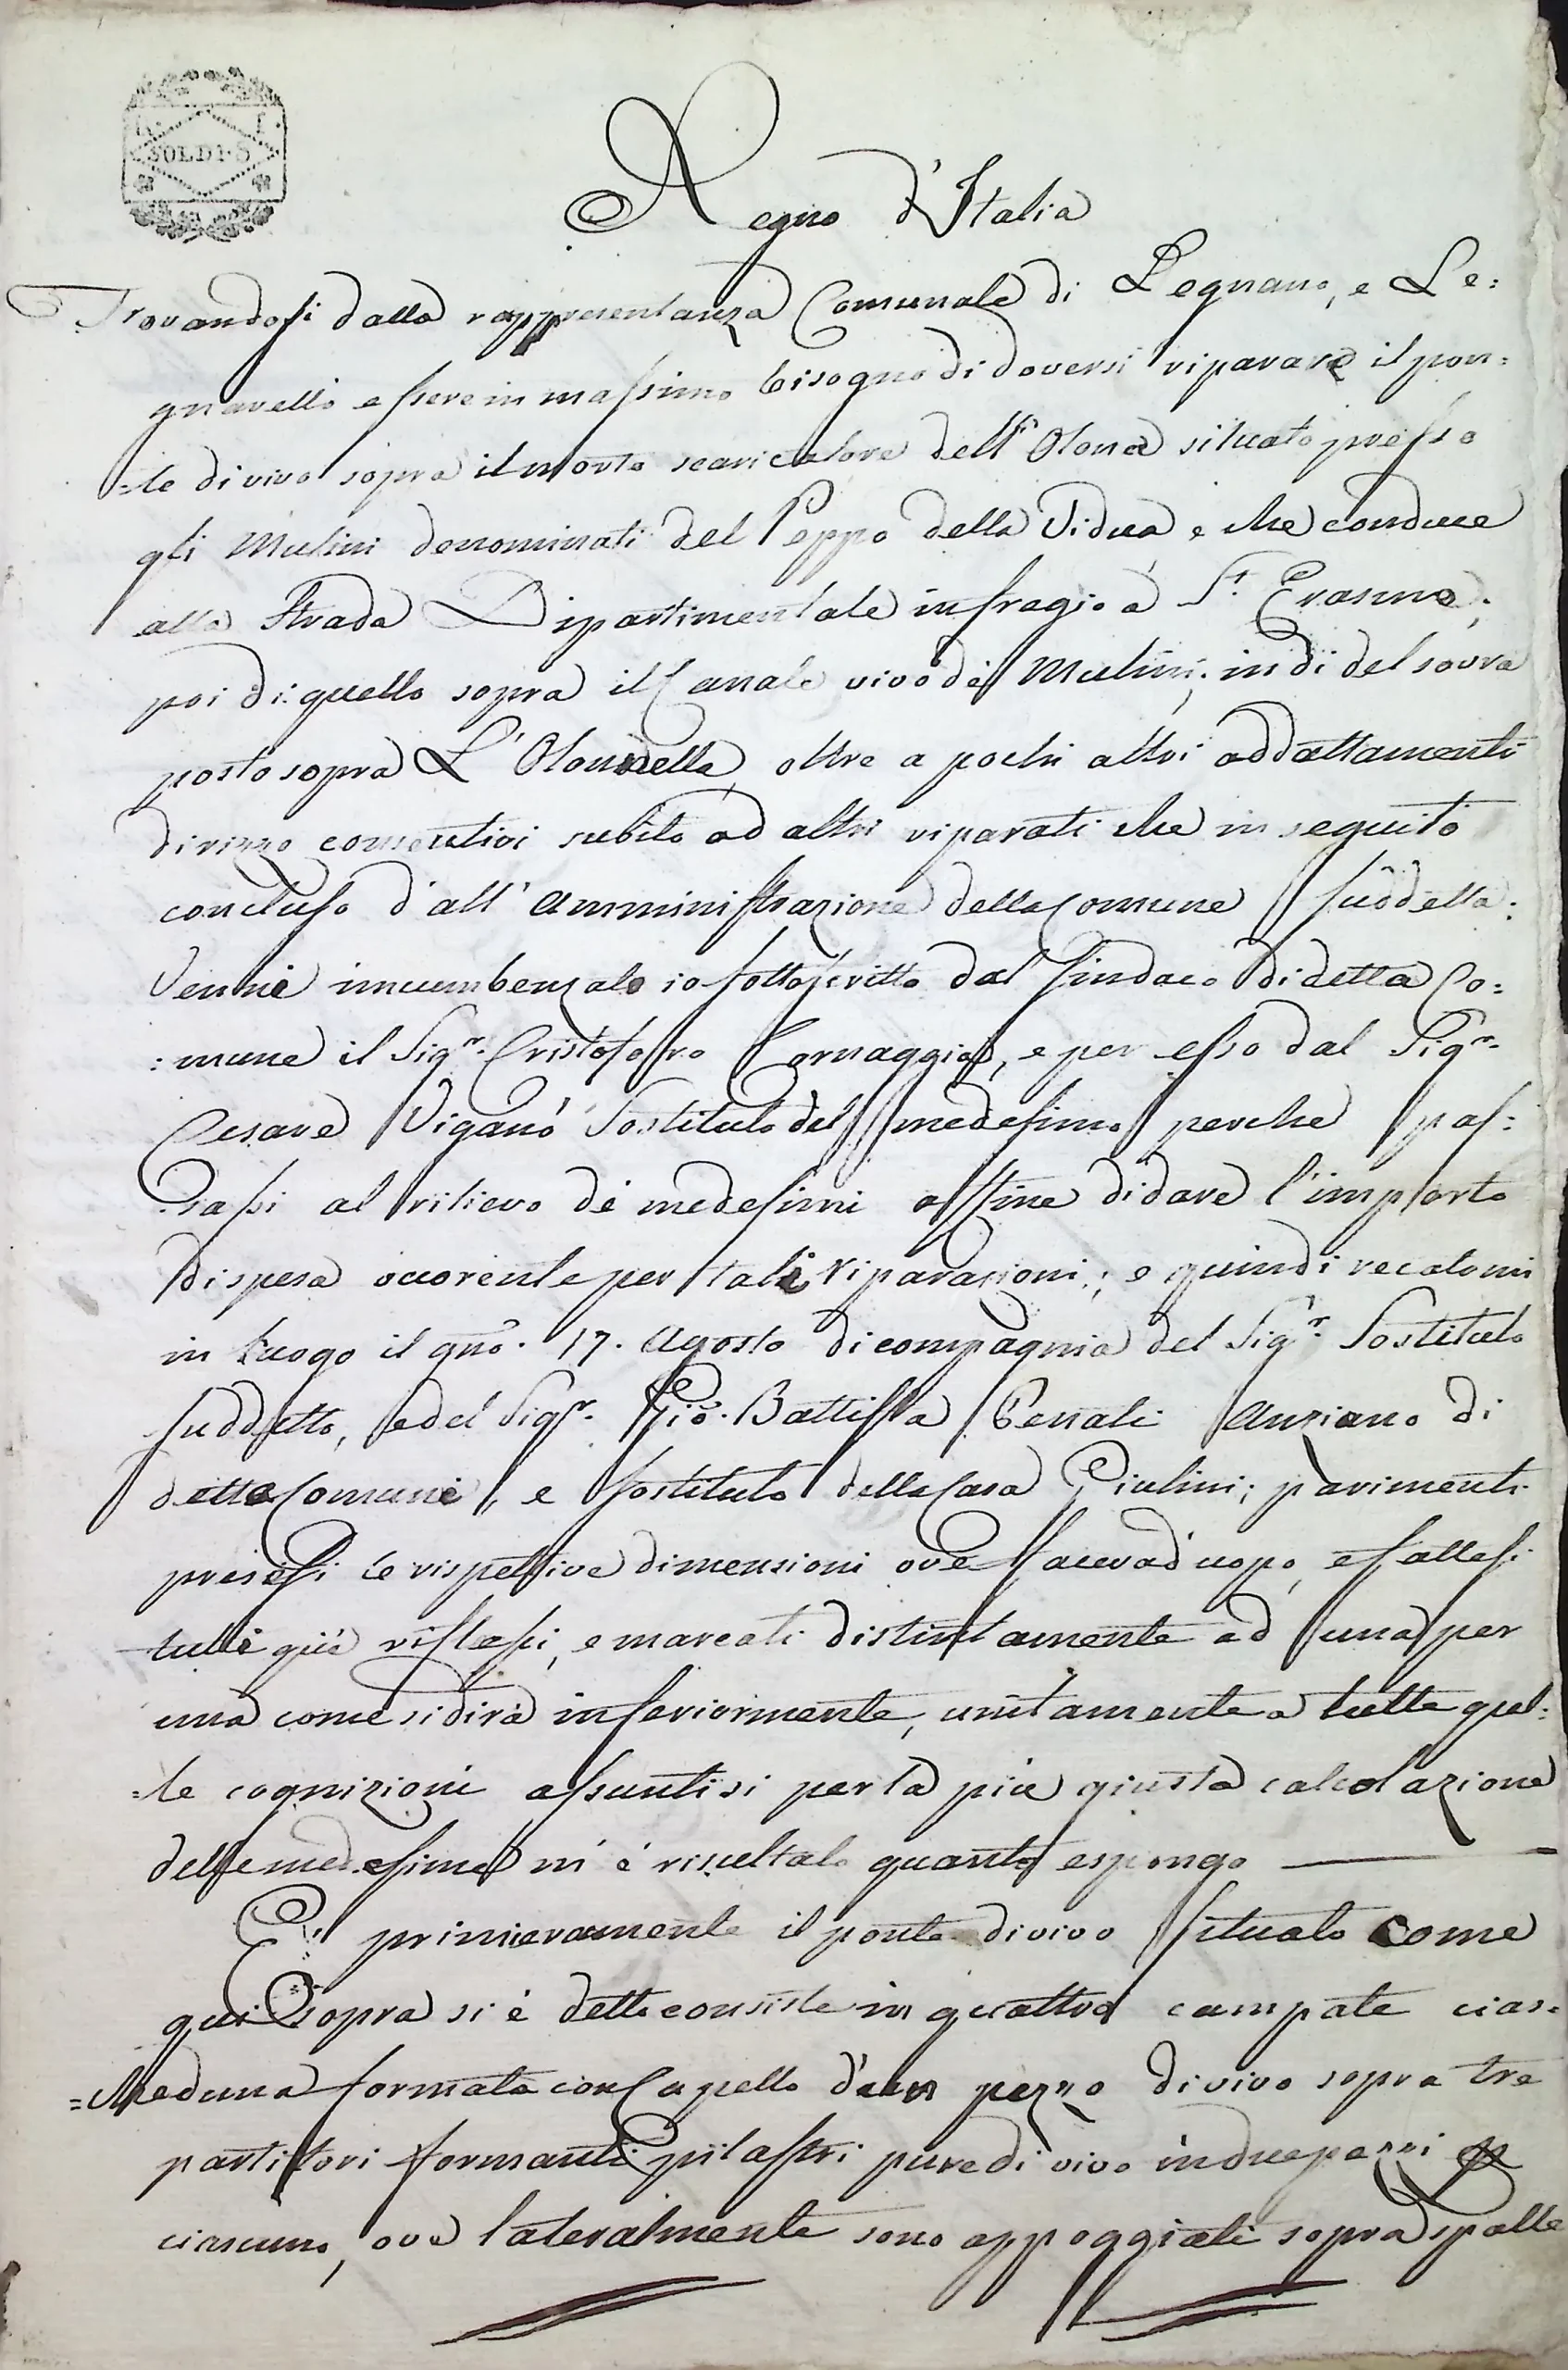 SOLDI 5
Regno d'Italia
Trovandosi dalla rappresentanza Comunale di Legnano, e Le:
gnarello essere in massimo bisogno di doversi riparare il pon:
=te di vivo sopra il morto scaricatore dell' Olona situato presso
gli Mulini denominati del Peppo della Vidua e che conduce
alla Strada Dipartimentale in fregio a St. Erasmo;
poi di quello sopra il Canale vivo dei Mulini; indi del sovra
posto sopra L' Olonnella, oltre a pochi altri addattamenti
di rizzo consecutivi subito ad altri riparati che in seguito
concluso d'all' Amministrazione della Comune suddetta:
Venne incumbenzato io sottoscritto dal Sindaco di detta Co:
:mune il Sigr. Cristoforo Cornaggia, e per esso dal Sigr.
Cesare Viganò Sostituto del medesimo perche pas:
sassi al rilievo de medesimi affine di dare l'importo
di spesa occorente per tali riparazioni; e quindi recatomi
in luogo il gno. 17. Agosto di compagnia del Sigr. Sostituto
Suddetto, ed el Sigr. Gio. Battista Penati Anziano di
detta Comune, e sostituto della Casa Giulini; parimenti
presesi le rispettive dimensioni ove faceva d'uopo, e fattesi
tutti già riflessi, e marcati distintamente ad una per
una come si dirà inferiormente, unitamente a tutte quel:
=le cognizioni assuntisi per la più giusta calcolazione
delle medesime m' è risultato quanto espongo
E primieramente il ponte di vivo situato come
qui sopra si è detto consiste in quattro campate cias:
=cheduna formata con Capello d'un pezzo di vivo sopra tre
partitori formanti pilastri pure di vivo in due pezzi
ciascuno, ove lateralmente sono appoggiati sopra spalle